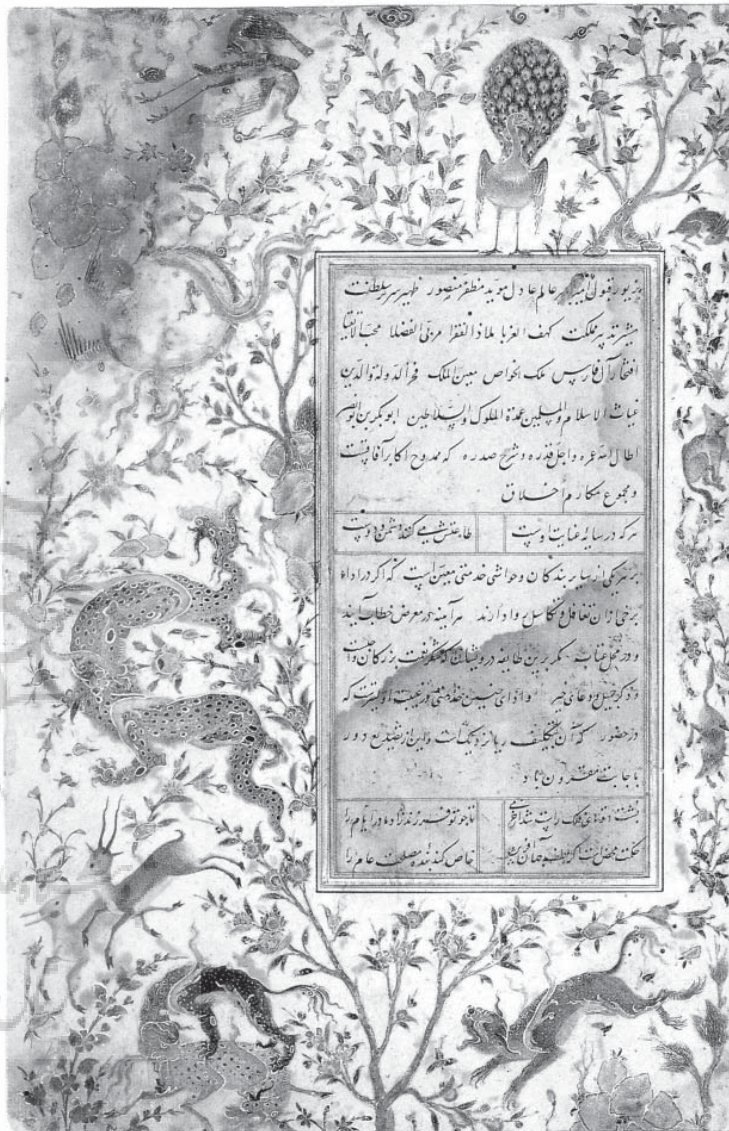 بزیور قبول امیر کبیر عالم عادل موید مظفر منصور ظهیر سریر سلطنت
مشیر تدبیر مملکت کهف الغربا ملاذ الفقرا مربی الفضلا محب الاتقیا
افتخار آل فارس ملک الخواص معین الملک فخر الدولة والدین
غیاث الاسلام والمسلمین عمدة الملوک والسلاطین ابوبکر بن ابو نصر
اطال الله عمره واجل قدره وشرح صدره که ممدوح اکابر آفاقست
ومجموع مکارم اخلاق
هرکه در سایه عنایت اوست طاعتش میکند دشمن ودوست
بر هر یکی از سایر بندکان وحواشی خدمتی معین است که اکر در اداء
برخی زان تغافل وتکاسل روا دارند هرآینه در معرض خطاب آیند
ودر محل عتاب مکر برین طایفه درویشان که شکر نعمت بزرکان واجبست
وذکر جمیل ودعای خیر وادای چنین خدمتی در غیبت اولیترست که
در حضور که آن بتکلف نزدیک است واین از تصنع دور
باجابت مقرون باد
پشت دوتای فلک راست شد از خرمی تا چو تو فرزند زاد مادر ایام را
حکمت محض است اکر لطف جهان آفرین خاص کند بنده مصلحت عام را